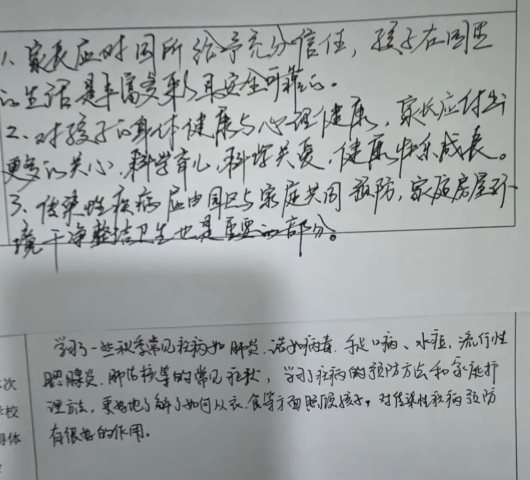 1、家长应对园所给予充分信任，孩子在园里
的生活是丰富多彩，且安全可靠的。
2、对孩子的身体健康与心理健康，家长应付出
更多的关心，科学育儿，科学关爱，健康快乐成长。
3、传染性疾病应由园区与家庭共同预防，家庭房屋环
境干净整洁卫生也是重要的部分。
学习了一些秋季常见疾病如肺炎、诺如病毒、手足口病、水痘、流行性
腮腺炎、肺结核等的常见症状，学习了疾病的预防方法和家庭护
理方法，更好地了解了如何从衣、食等方面照顾孩子，对传染性疾病预防
有很好的作用。
次
校
体